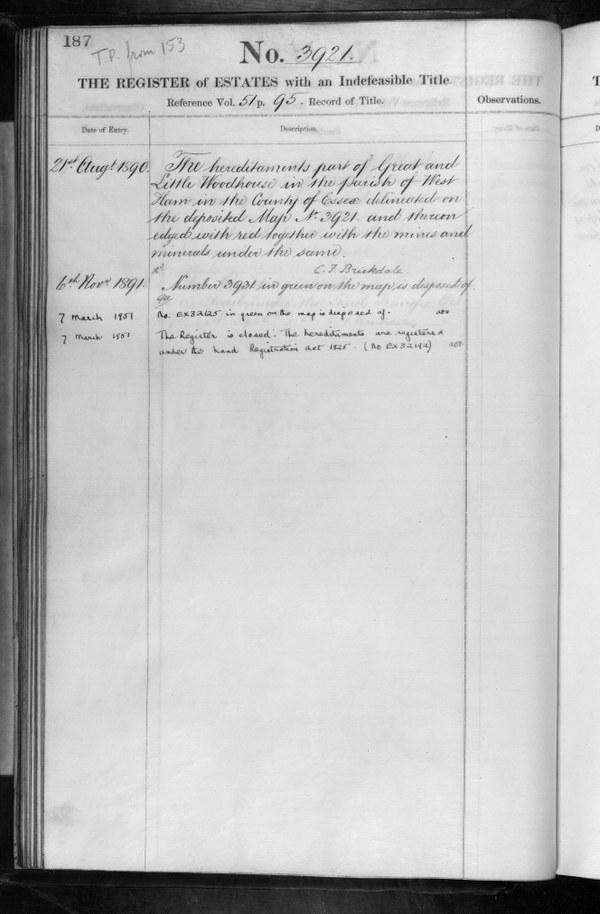 187
T.P. from 153
No. 3921.
THE REGISTER of ESTATES with an Indefeasible Title.
Reference Vol. 51 p. 95. Record of Title.
Observations.
Date of Entry.
Description.
21st Augt 1890. The hereditaments part of Great and
Little Woodhouse in the parish of West
Ham in the County of Essex delineated on
the deposited Map No. 3921. and thereon
edged with red together with the mines and
minerals under the same.
C. F. Brickdale
6th Novr 1891. Number 3931 in green on the map is disposed of
7 March 1951 No. EX32125 in green on the map is disposed of.
7 March 1951 The Register is closed. The hereditaments are registered
under the Land Registration Act 1925. (No EX32192)